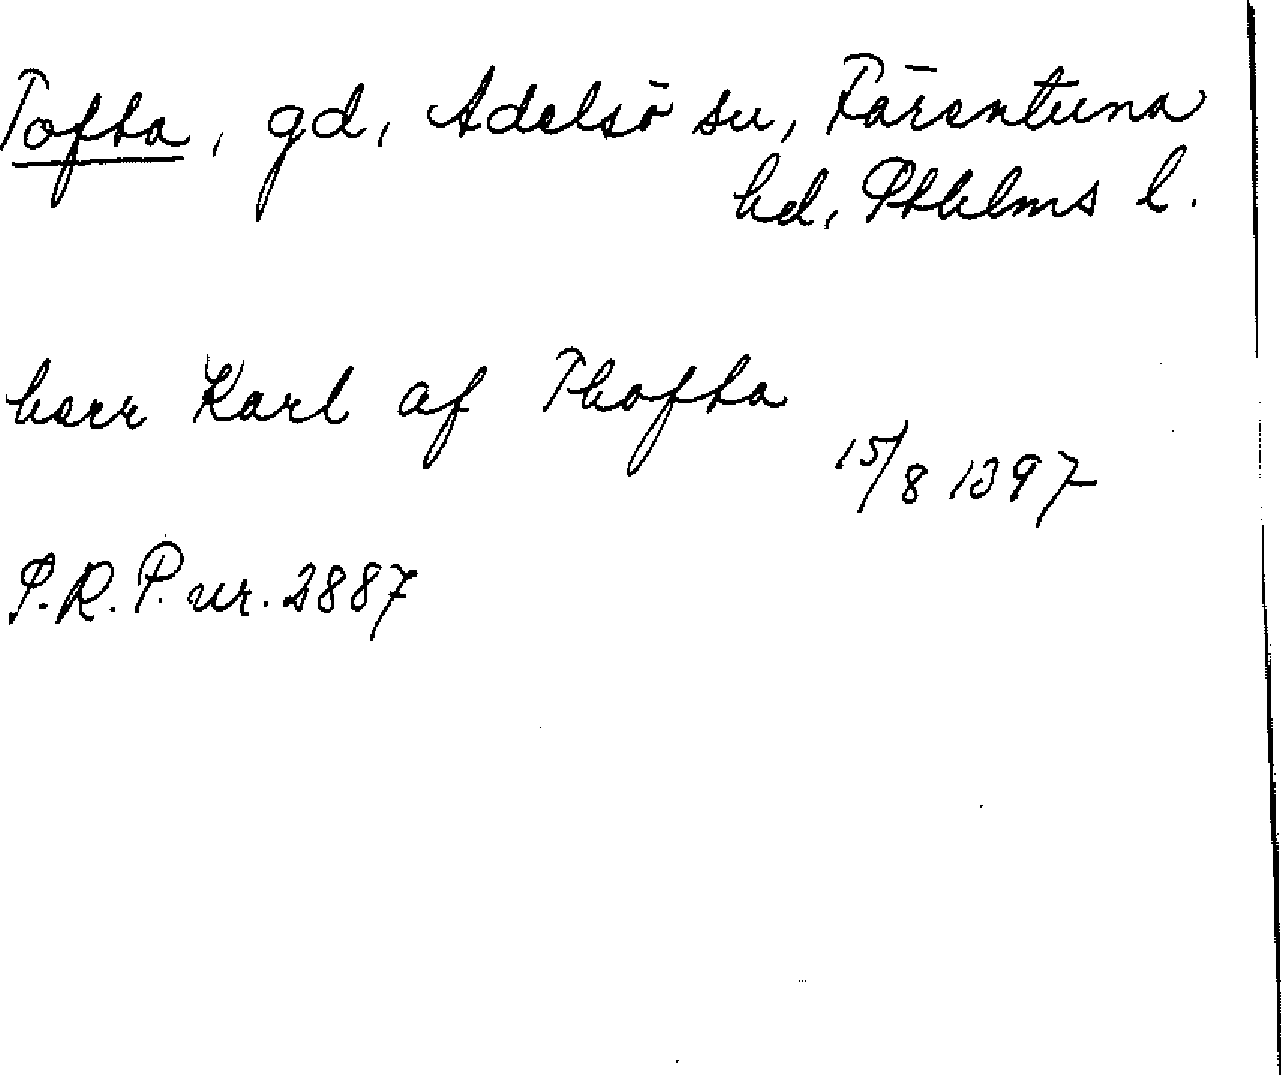 Tofta, gd, Adelsö sn, Färentuna
hd, Sthlms l.
herr Karl af Thofta
15/8 1397
S.R.P. nr. 2887